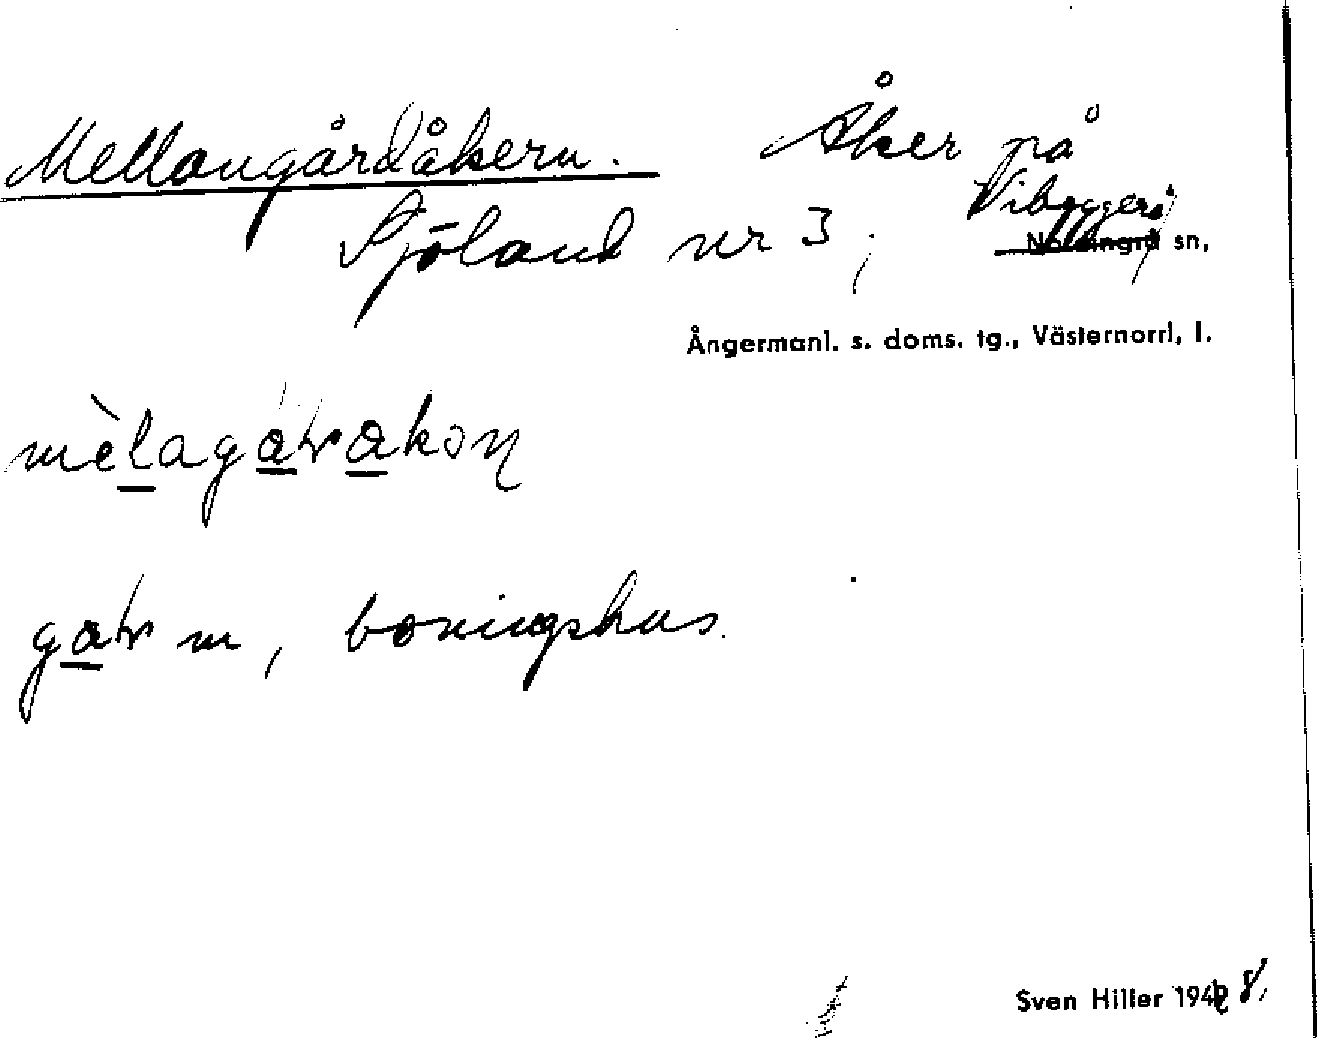 Mellangårdåkern. Åker på
Sjöland nr 3, Vibyggerå
Nordingrå sn,
Ångermanl. s. doms. tg., Västernorrl. l.
mèlagàrakon
gar m, boningshus.
Sven Hiller 1948.